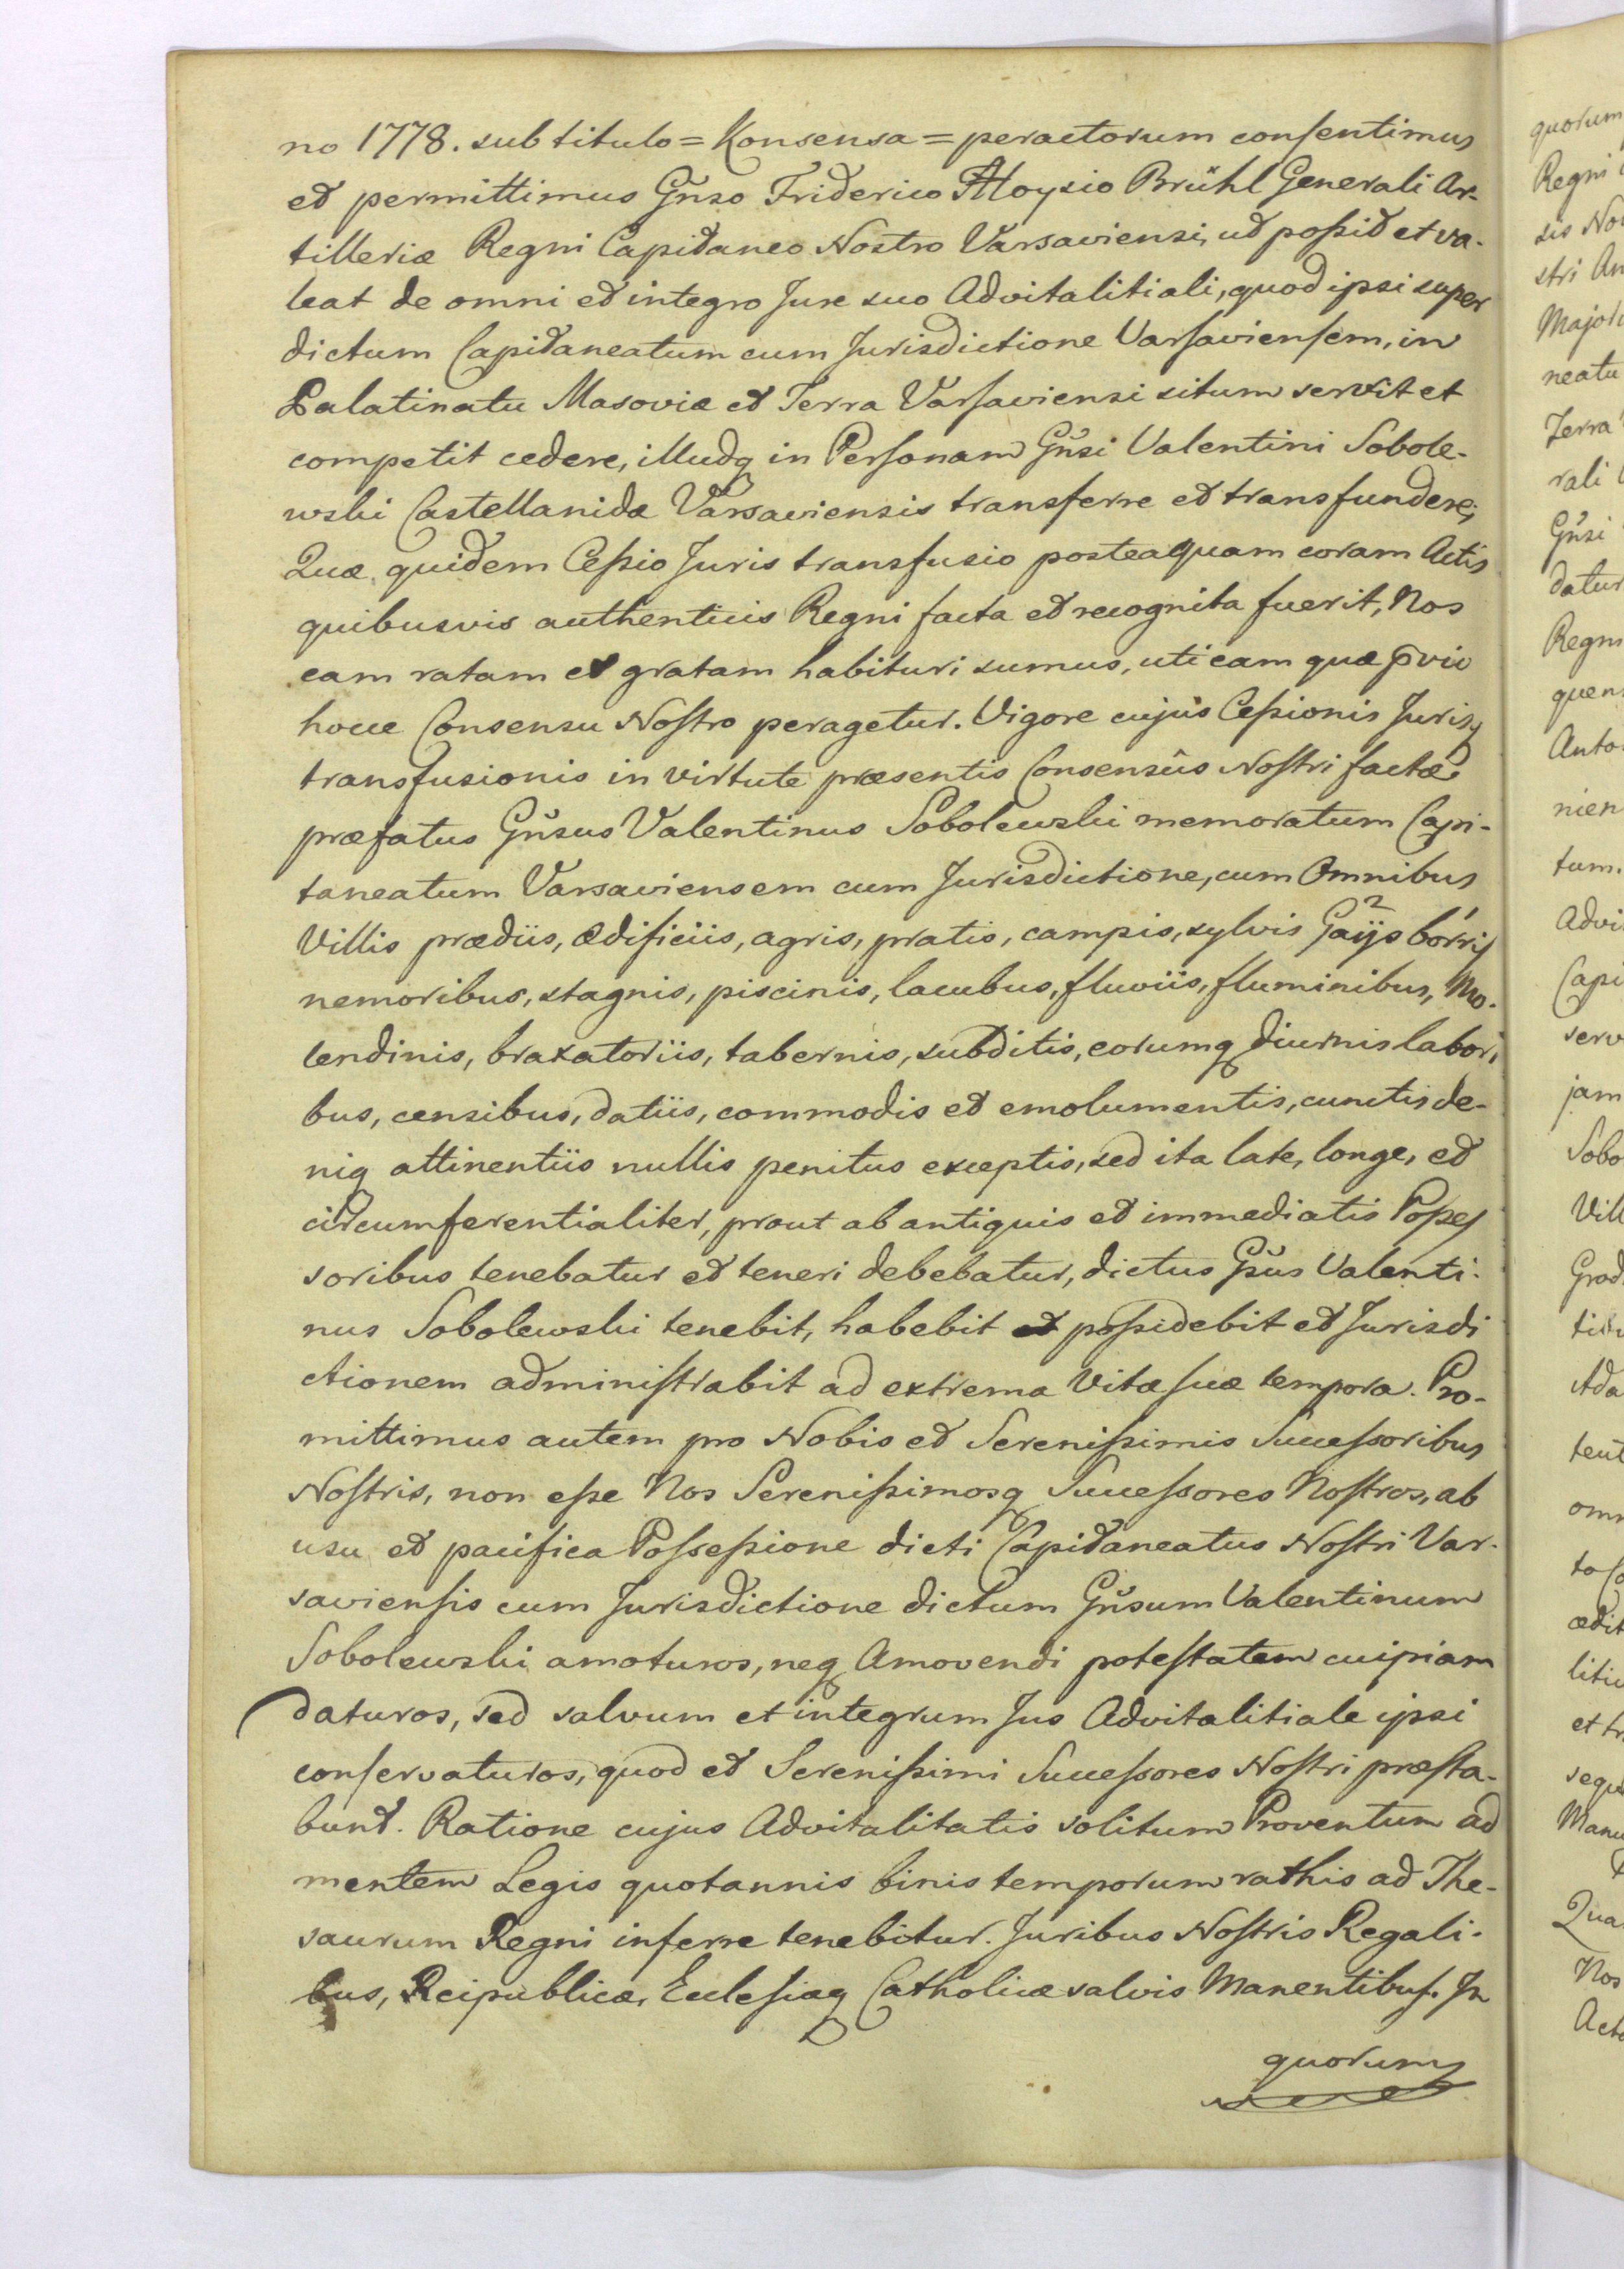 no 1778. sub titulo = Konsensa = peractorum consentimus
et permittimus Gñso Friderico Aloysio Brühl Generali Ar-
tilleriæ Regni Capitaneo Nostro Varsaviensi, ut possit et va-
leat de omni et integro Jure suo Advitalitiali, quod ipsi super
dictum Capitaneatum cum Jurisdictione Varsaviensem, in
Palatinatu Masoviæ et Terra Varsaviensi situm servit et
competit cedere, illudq in Personam Gñsi Valentini Sobole-
wski Castellanidæ Varsaviensis transferre et transfundere;
Quæ quidem Cessio Juris transfusio posteaquam coram Actis
quibusvis authenticis Regni facta et recognita fuerit, Nos
eam ratam et gratam habituri sumus, uti eam quæ pvio
hocce Consensu Nostro peragetur. Vigore cujus Cessionis Jurisq
transfusionis in virtute præsentis Consensûs Nostri factæ
præfatus Gñsus Valentinus Sobolewski memoratum Capi-
taneatum Varsaviensem cum Jurisdictione, cum Omnibus
Villis prædiis, ædificiis, agris, pratis, campis, sylvis Gaijs borris
nemoribus, stagnis, piscinis, lacubus, fluviis, fluminibus, Mo-
lendinis, braxatoriis, tabernis, subditis, eorumq diurnis labori
bus, censibus, datiis, commodis et emolumentis, cunctis de-
niq attinentiis nullis penitus exceptis, sed ita late, longe, et
circumferentialiter, prout ab antiquis et immediatis Posses
soribus tenebatur et teneri debebatur, dictus Gsus Valenti-
nus Sobolewski tenebit, habebit et possidebit et Jurisdi
ctionem administrabit ad extrema Vitæ suæ tempora. Pro-
mittimus autem pro Nobis et Serenissimis Successoribus
Nostris, non esse Nos Serenissimosq Successores Nostros, ab
usu et pacifica Possessione dicti Capitaneatus Nostri Var-
saviensis cum Jurisdictione dictum Gñsum Valentinum
Sobolewski amoturos, neq Amovendi potestatem cuipiam
daturos, sed salvum et integrum Jus Advitalitiale ipsi
conservaturos, quod et Serenissimi Successores Nostri præsta-
bunt. Ratione cujus Advitalitatis solitum Proventum ad
mentem Legis quotannis binis temporum rathis ad The-
saurum Regni inferre tenebitur. Juribus Nostris Regali-
bus, Reipublicæ, Ecclesiæq Catholicæ salvis Manentibus. In
quorum
quorum
Regni
sis No
stri An
Major
neatu
Terra
rali
Gñsi
datur
Regni
quen
Anto
nien
tum.
Advi
Capi
serv
jam
Sobo
Vill
Grod
Ada
tent
omn
ædit
litiu
et tr
sequ
Manu
Qua
Nos
Acto